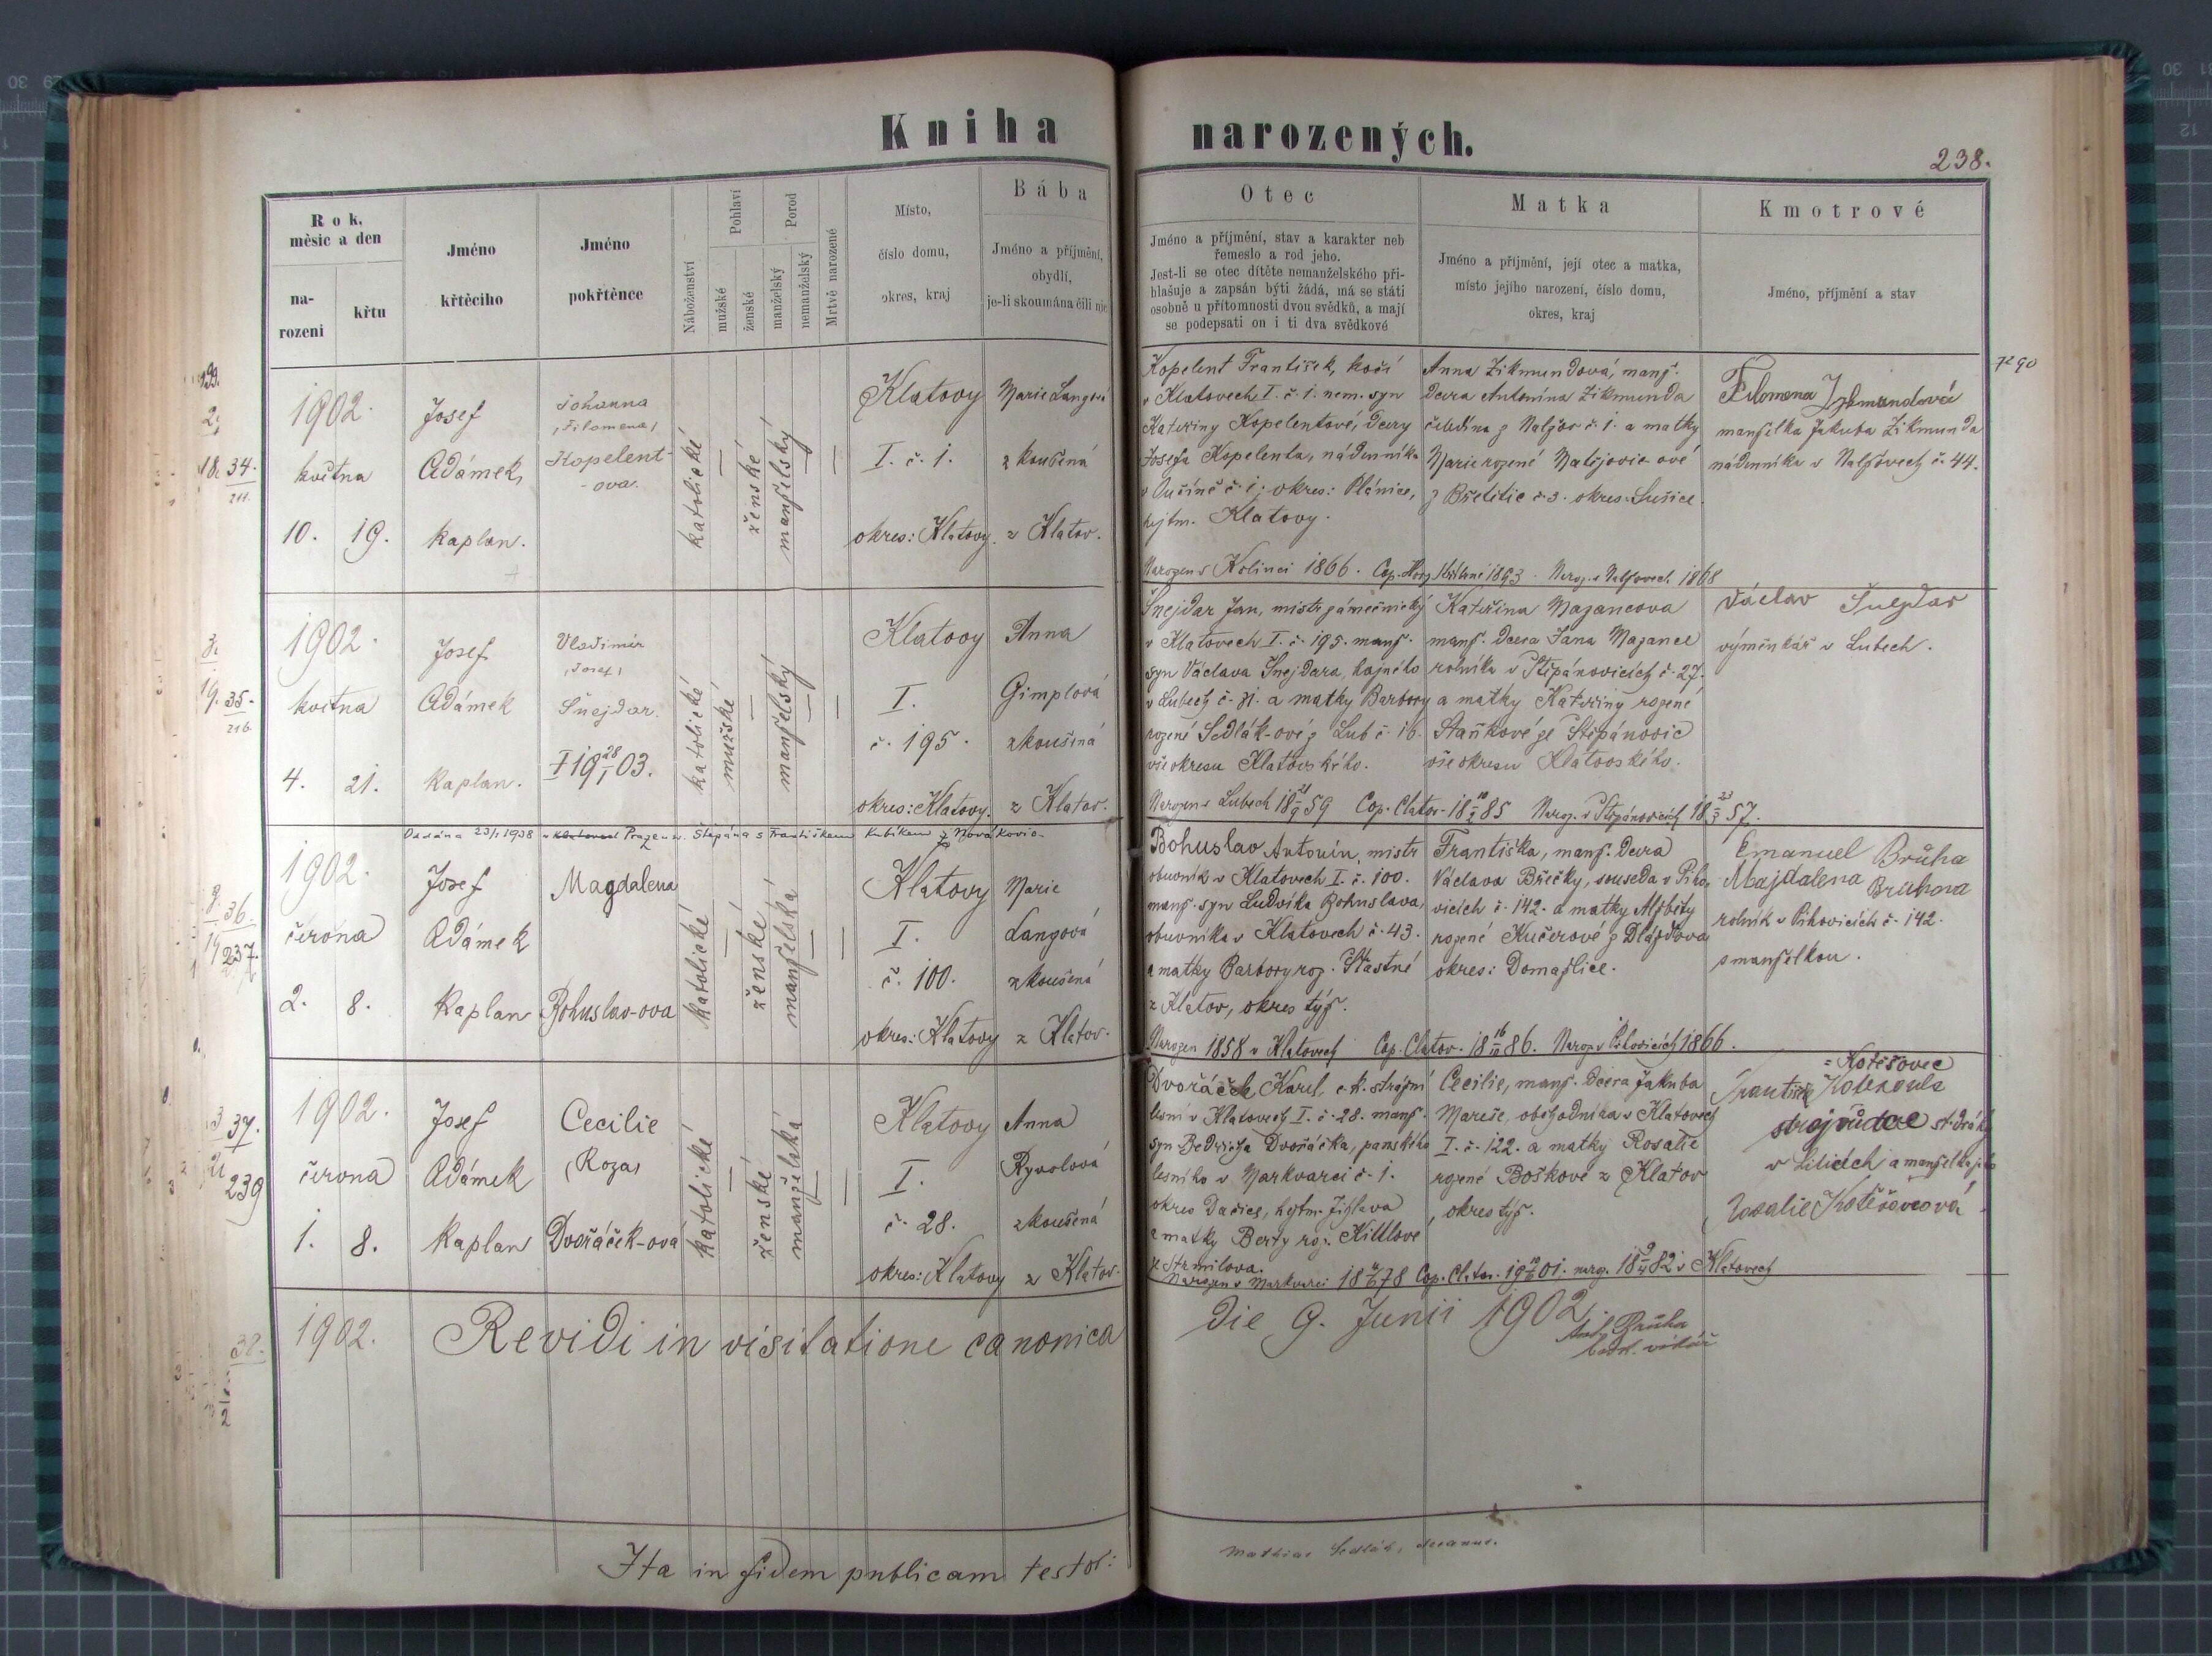 Kniha narozených.
238.
Rok, měsíc a den
narození
křtu
Jméno křtěcího
Jméno pokřtěnce
Náboženství
Pohlaví
mužské
ženské
Porod
manželský
nemanželský
Mrtvě narozené
Místo,
číslo domu,
okres, kraj
Bába
Jméno a příjmění,
obydlí,
je-li zkoumána čili nic
Otec
Jméno a příjmění, stav a karakter neb
řemeslo a rod jeho.
Jest-li se otec dítěte nemanželského při-
hlašuje a zapsán býti žádá, má se státi
osobně u přítomnosti dvou svědků, a mají
se podepsati on i ti dva svědkové
Matka
Jméno a příjmění, její otec a matka,
místo jejího narození, číslo domu,
okres, kraj
Kmotrové
Jméno, příjmění a stav
34.
1902.
května
10. 19.
Josef
Adámek,
Kaplan.
Johanna
(Filomena)
Kopelent-
-ova.
katolické
—
ženské
manželský
—
—
Klatovy
I. č. 1.
okres: Klatovy.
Marie Langová
zkoušená
z Klatov.
Kopelent František, kočí
v Klatovech I. č. 1. nem. syn
Kateřiny Kopelentové, dcery
Josefa Kopelenta, nádenníka
v Oučíně č. 1; okres: Plánice,
hejtm. Klatovy.
Anna Zikmundová, manž.
dcera Antonína Zikmunda
čeledína z Nalžov č. 1. a matky
Marie rozené Matějovic-ové
z Břetětic č. 3. okres: Sušice.
Filomena Zykmundová
manželka Jakuba Zikmunda
nádenníka v Nalžovech č. 44.
Narozen v Kolinci 1866. Cop. 1893. Naroz. v Nalžovech 1868
35.
1902.
května
4. 21.
Josef
Adámek
Kaplan.
Vladimír
(Josef)
Šnejdar.
† 19 28/I 03.
katolické
mužské
—
manželský
—
—
Klatovy
I.
č. 195.
okres: Klatovy.
Anna
Gimplová
zkoušená
z Klatov.
Šnejdar Jan, mistr zámečnický
v Klatovech I. č. 195. manž.
syn Václava Šnejdara, hajného
v Lubech č. 31. a matky Barbory
rozené Sedlák-ové z Lub č. 16.
vše okresu Klatovského.
Kateřina Mazancova
manž. dcera Jana Mazance
rolníka v Štěpánovicích č. 27.
a matky Kateřiny rozené
Staňkové ze Štěpánovic
vše okresu Klatovského.
Václav Šnejdar
výměnkář v Lubech.
Narozen v Lubech 1859 Cop. Clatov. 1885 Naroz. v Štěpánovicích 1857.
Oddána 23/1 1938 v Praze u sv. Štěpána s Františkem Kubíkem z Novákovic.
36.
237.
1902.
června
2. 8.
Josef
Adámek
Kaplan
Magdalena
Bohuslav-ova
katolické
—
ženské
manželská
—
—
Klatovy
I.
č. 100.
okres: Klatovy
Marie
Langová
zkoušená
z Klatov.
Bohuslav Antonín, mistr
obuvník v Klatovech I. č. 100.
manž. syn Ludvíka Bohuslava,
obuvníka v Klatovech č. 43.
a matky Barbory roz. Šťastné
z Klatov, okres týž.
Františka, manž. dcera
Václava Břečky, souseda v Piho-
vicích č. 142. a matky Alžběty
rozené Kučerové z Dlážďova
okres: Domažlice.
Emanuel Brůha
Majdalena Bruhova
rolník v Pihovicích č. 142.
s manželkou.
Narozen 1858 v Klatovech Cop. Clatov. 18 16/ 86. Naroz. v Pihovicích 1866.
37.
239
1902.
června
1. 8.
Josef
Adámek
Kaplan
Cecilie
(Roza)
Dvořáček-ová
katolické
—
ženské
manželská
—
—
Klatovy
I.
č. 28.
okres: Klatovy
Anna
Rysolová
zkoušená
z Klatov.
Dvořáček Karel, c. k. strážní
lesní v Klatovech I. č. 28. manž.
syn Bedřicha Dvořáčka, panského
lesního v Markvarci č. 1.
okres Dačice, hejtm. Jihlava
a matky Berty roz. Kittlove
z Strmilova.
Cecilie, manž. dcera Jakuba
Mareše, obchodníka v Klatovech
I. č. 122. a matky Rosalie
rozené Boškové z Klatov
, okres týž.
= Kotěšovec
František
strojvůdce st. dráhy
v Liticích a manželka jeho
Rosalie Kotěšovcová
Narozen v Markvarci 1878 Cop. Clatov. 1901. naroz. 1882 v Klatovech
38.
1902. Revidi in visitatione canonica die 9. Junii 1902.
Ant. Brůha
bisk. vikář
Ita in fidem publicam testor:
Mathias Sedlák, decanus.